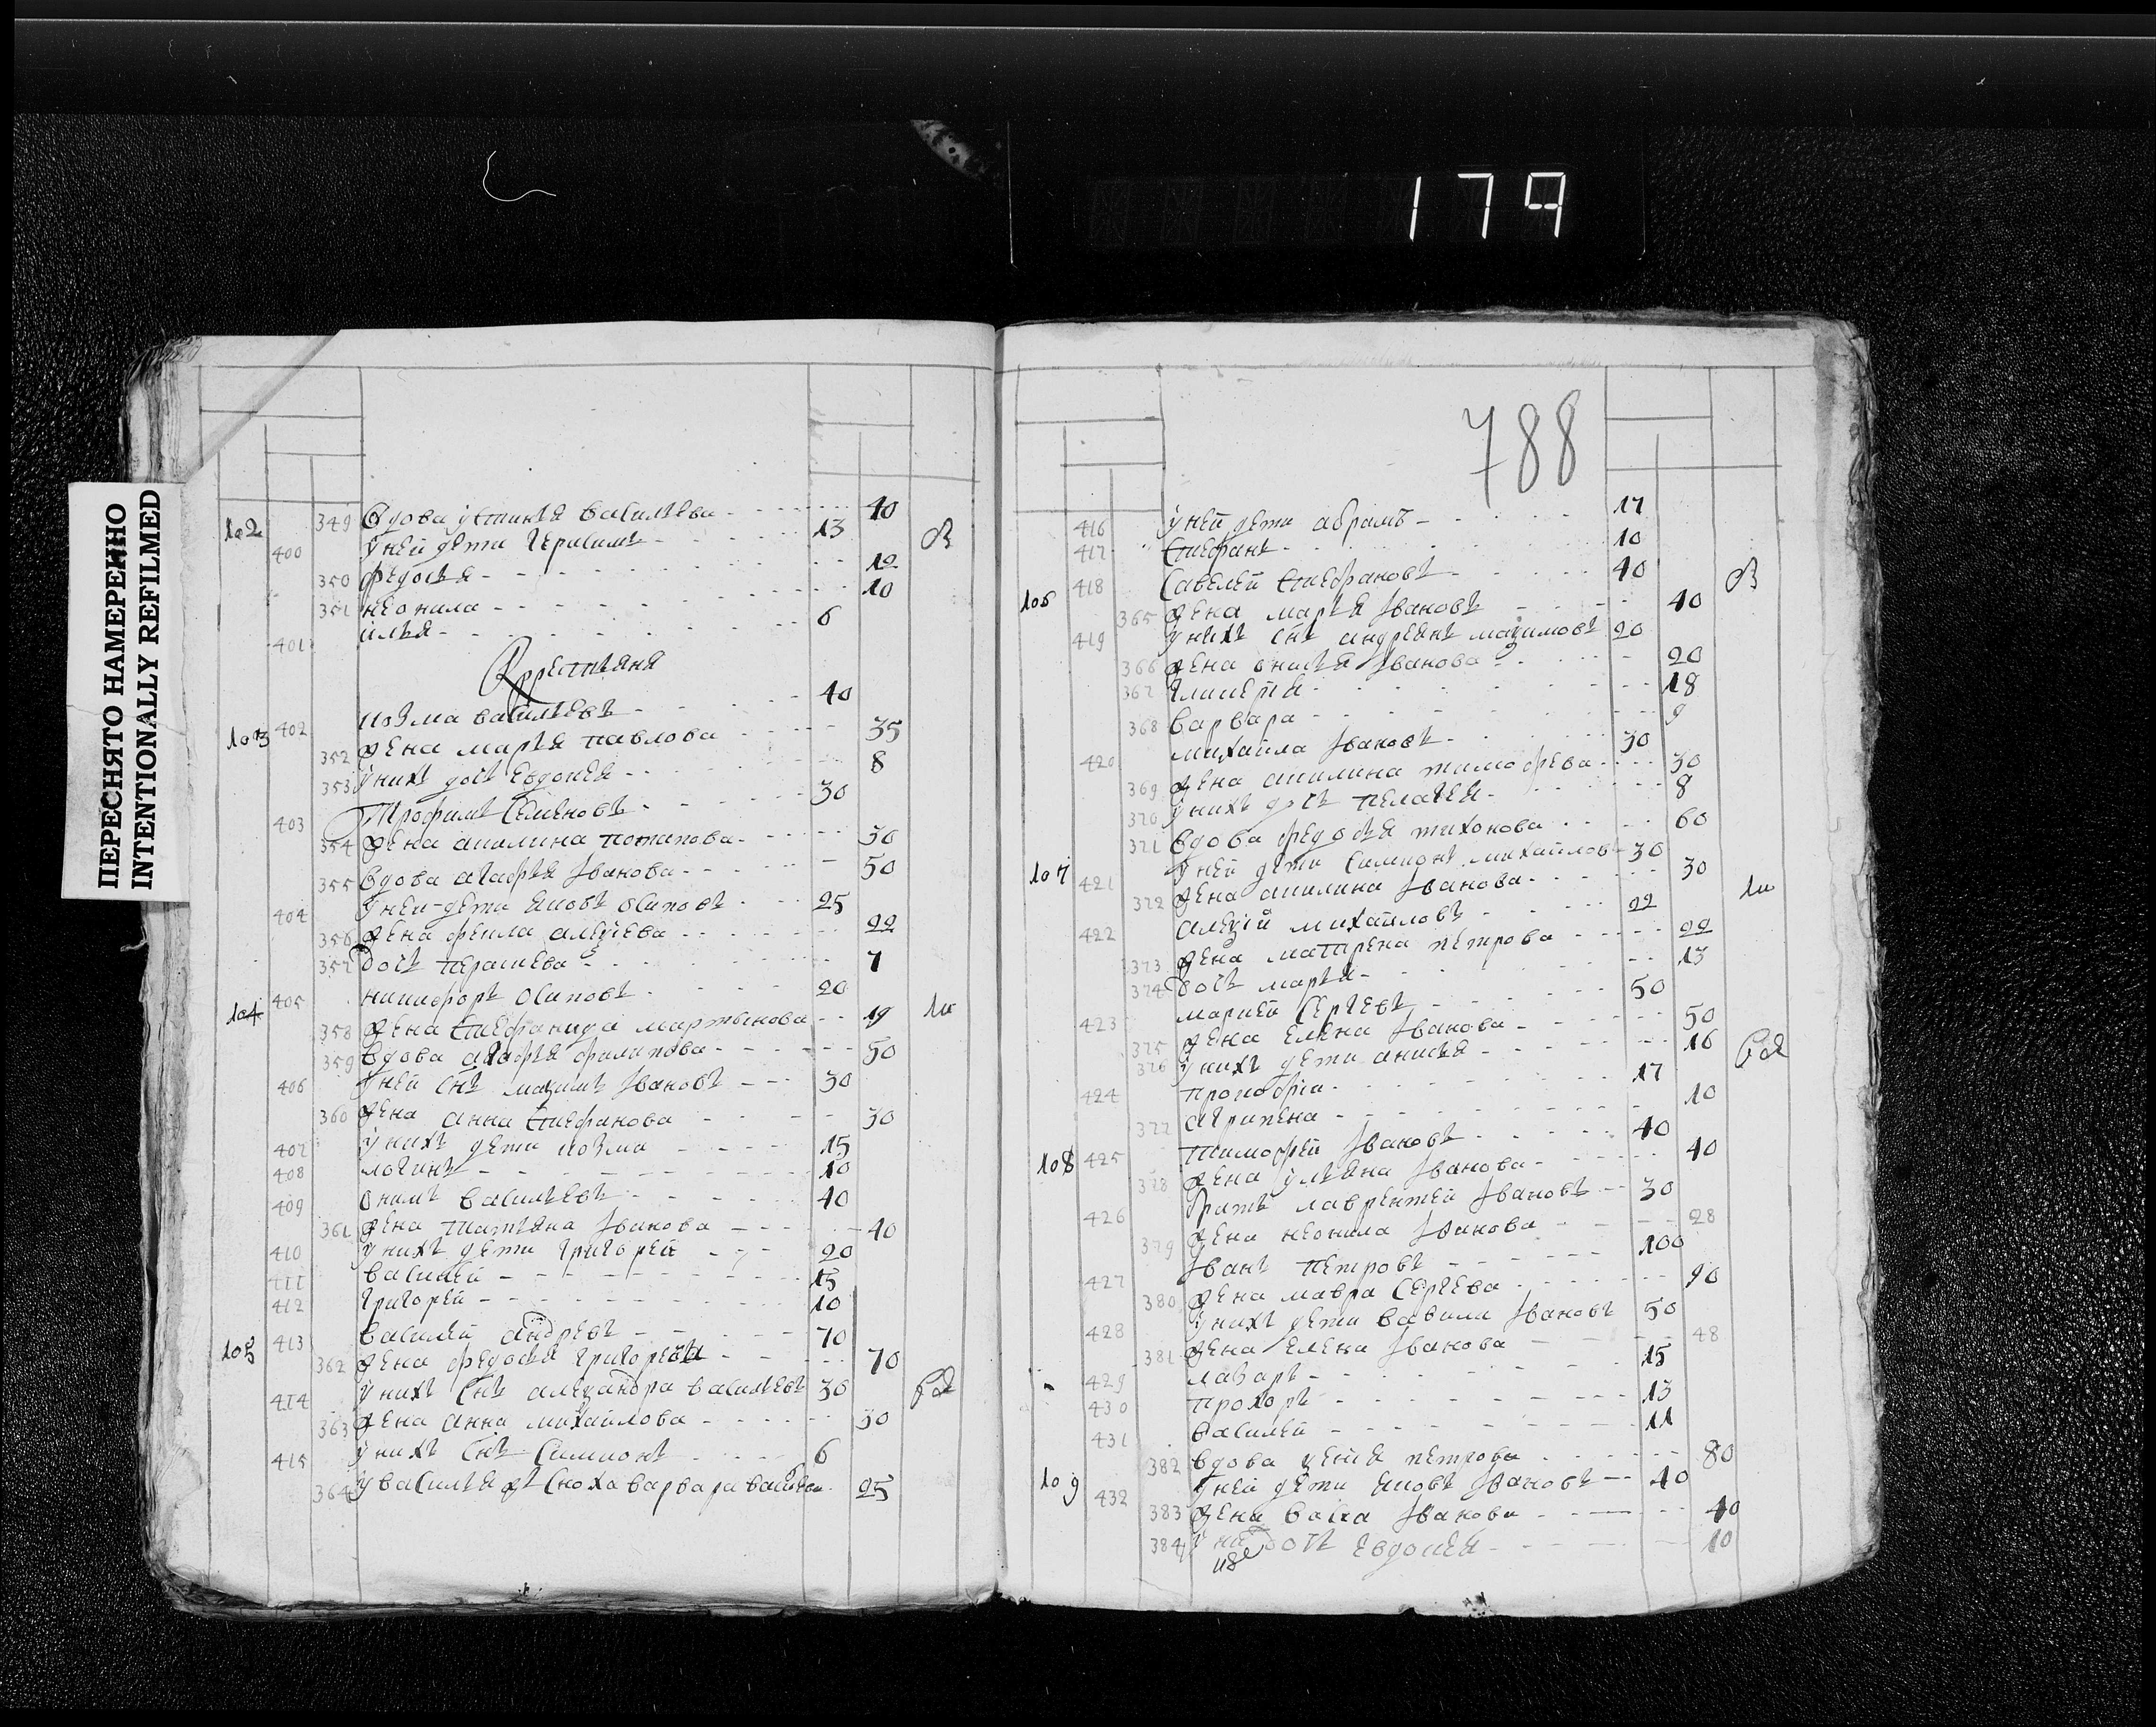 179
ПЕРЕСНЯТО НАМЕРЕННО
INTENTIONALLY REFILMED
102 349 Вдова устинья васильева 40
400 у ней дети герасимъ 13
350 федосья 12
351 неонила 10
401 илья 6
Крестьяня
103 402 козма васильевъ 40
352 жена марья павлова 35
353 у нихъ дочь евдокея 8
403 Трофимъ семеновъ 30
354 жена акилина потапова 30
355 вдова агафья иванова 50
404 у ней дети яковъ осиповъ 25
356 жена фекла алексеева 22
357 дочь перасковья 7
104 405 никифоръ осиповъ 20
358 жена степанида мартынова 19
359 вдова агафья филипова 50
406 у ней снъ максимъ ивановъ 30
360 жена анна степанова 30
407 у нихъ дети козма 15
408 логинъ 10
409 онимъ васильевъ 40
361 жена татьяна иванова 40
410 у нихъ дети григорей 20
411 василей 15
412 григорей 10
105 413 василей андреевъ 70
362 жена федосья григорева 70
414 у нихъ снъ александра васильевъ 30
363 жена анна михайлова 30
415 у нихъ снъ симионъ 6
364 у василья сноха варвара 25
788
416 у ней дети абрамъ 17
417 степанъ 10
106 418 савелей степановъ 40
365 жена марья ивановъ 40
419 у нихъ снъ андреянъ максимовъ 20
366 жена онисья иванова 20
367 гликерья 18
368 варвара 9
420 михайла ивановъ 30
369 жена акилина тимофеева 30
370 у нихъ дочь пелагея 8
371 вдова федосья тихонова 60
107 421 у ней дети симионъ михайловъ 30
372 жена акилина иванова 30
422 алексей михайловъ 22
373 жена матрена петрова 22
374 дочь марья 13
423 маркей сергеевъ 50
375 жена елена иванова 50
376 у нихъ дети анисья 16
424 прокофiи 17
377 агрипена 10
108 425 тимофей ивановъ 40
378 жена ульяна иванова 40
426 братъ лаврентей ивановъ 30
379 жена неонила иванова 28
427 иванъ петровъ 100
380 жена мавра сергеева 90
428 у нихъ дети вавила ивановъ 50
381 жена елена иванова 48
429 лазарь 15
430 прохоръ 13
431 василей 11
382 вдова ксенiя петрова 80
109 432 у ней дети яковъ ивановъ 40
383 жена васса иванова 40
384 у нихъ дочь евдокея 10